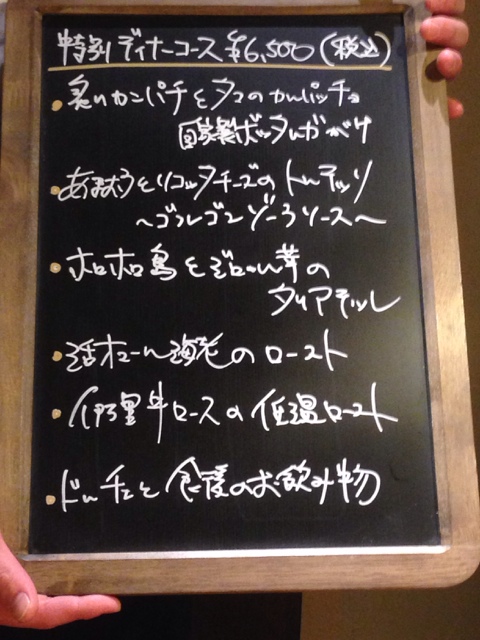 特別ディナーコース ¥6,500(税込)
・炙りカンパチとタコのカルパッチョ
自家製ボッタルガがけ
・あまおうとリコッタチーズのトルテッリ
～ゴルゴンゾーラソース～
・ホロホロ鳥とジロール茸の
タリアテッレ
・活オマール海老のロースト
・伊万里牛ロースの低温ロースト
・ドルチェと食後のお飲み物